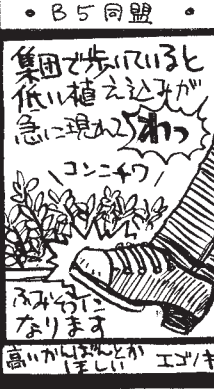 ・B5同盟・
集団で歩いていると
低い植え込みが
急に現れて
わっ
コンニチワ
ふみそうに
なります
高いかんばんとか
ほしい
エゴノキ